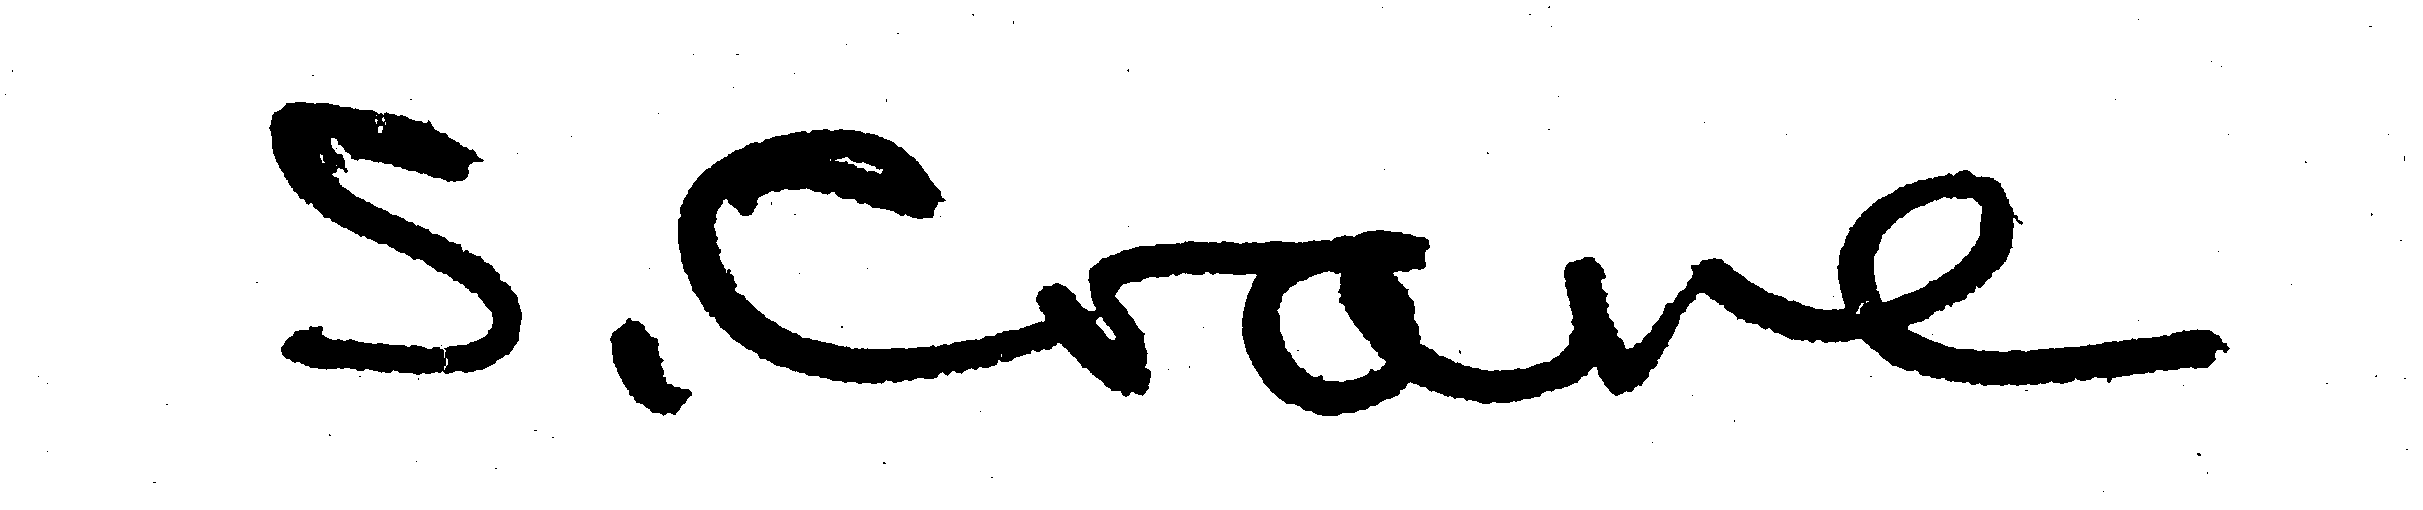 S. Crane